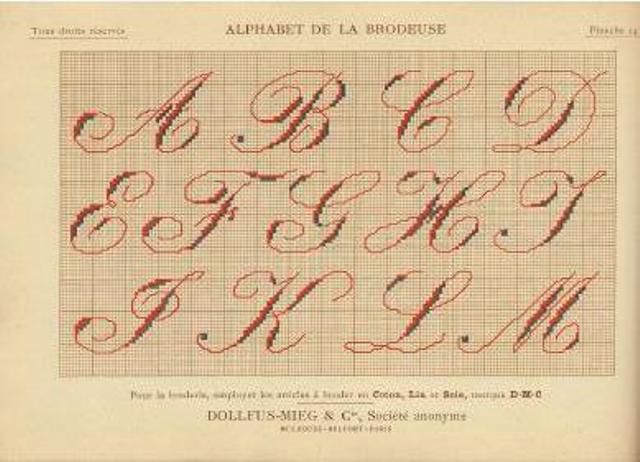 Tous droits réservés
ALPHABET DE LA BRODEUSE
Planche 14
A B C D
E F G H I
J K L M
Pour la broderie, employer les articles à broder en Coton, Lin et Soie, marque D·M·C
DOLLFUS-MIEG & Cie, Société anonyme
MULHOUSE-BELFORT-PARIS